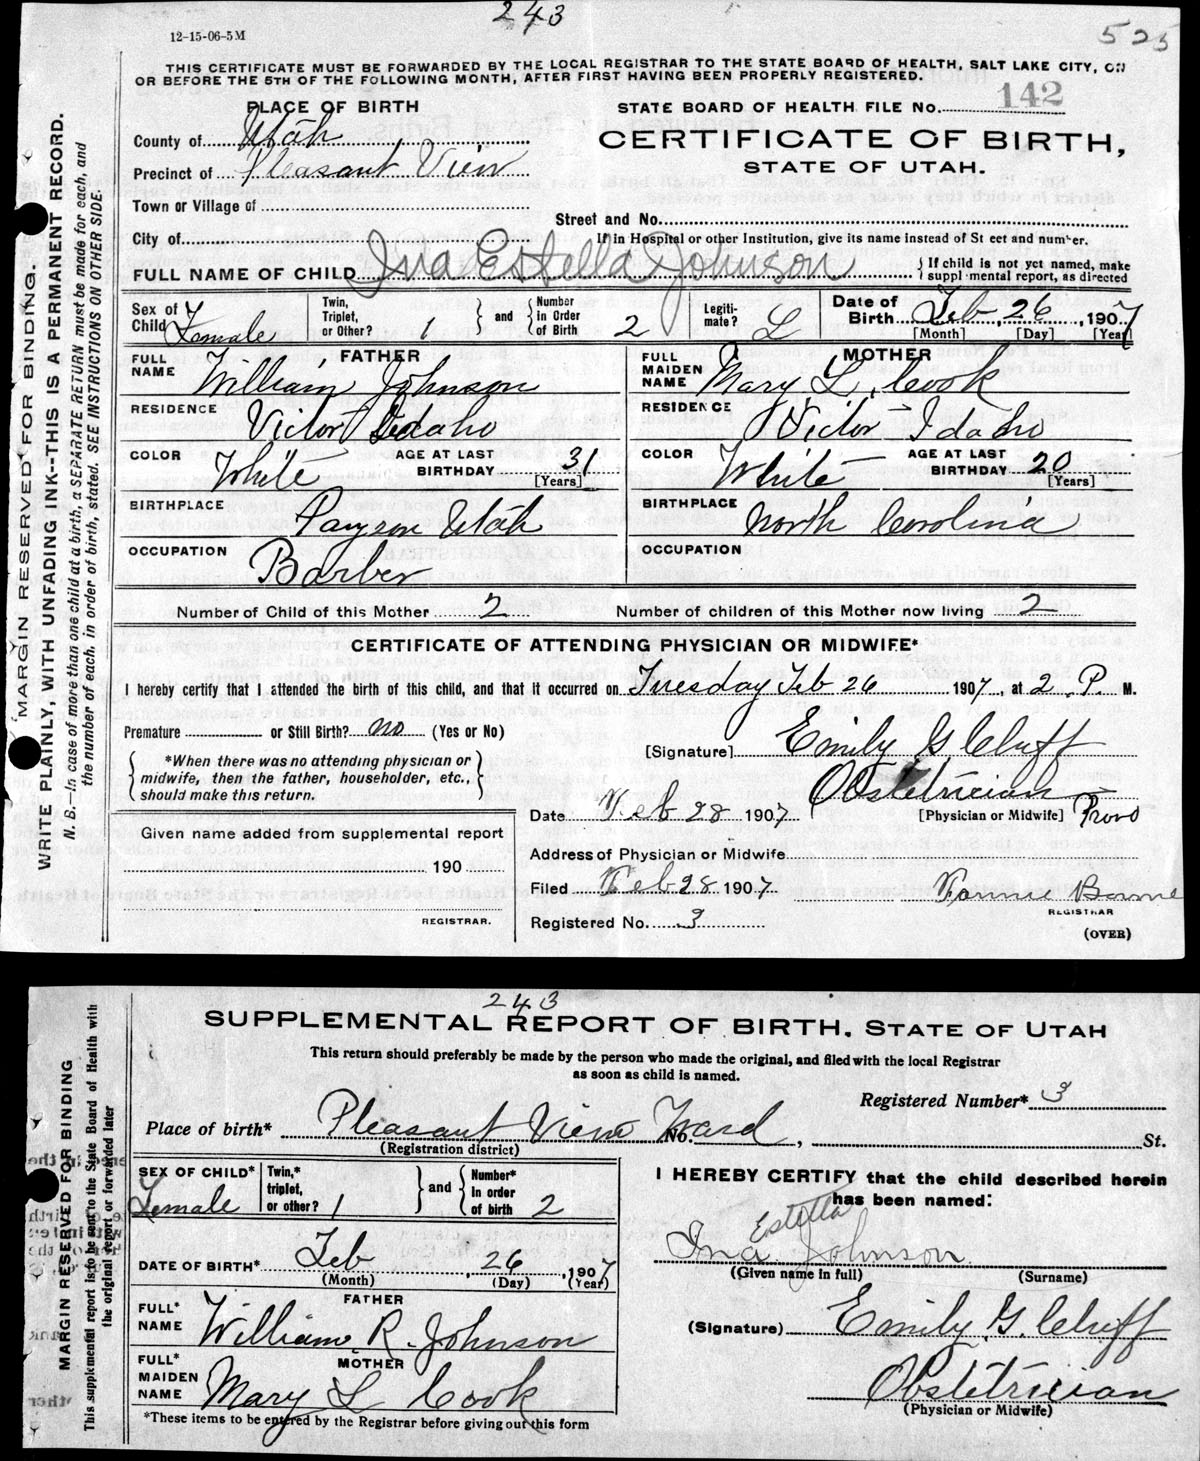 243
12-15-06-5M
525
THIS CERTIFICATE MUST BE FORWARDED BY THE LOCAL REGISTRAR TO THE STATE BOARD OF HEALTH, SALT LAKE CITY, ON
OR BEFORE THE 5TH OF THE FOLLOWING MONTH, AFTER FIRST HAVING BEEN PROPERLY REGISTERED.
PLACE OF BIRTH
STATE BOARD OF HEALTH FILE No. 142
County of Utah
CERTIFICATE OF BIRTH,
Precinct of Pleasant View
STATE OF UTAH.
Town or Village of
Street and No.
City of
If in Hospital or other Institution, give its name instead of St eet and number.
FULL NAME OF CHILD Ina Estella Johnson { If child is not yet named, make
suppl mental report, as directed
Sex of Child Female
Twin, Triplet, or Other? 1 } and { Number in Order of Birth 2
Legiti-mate? L
Date of Birth Feb, 26, 1907
[Month] [Day] [Year]
FATHER
FULL NAME William Johnson
RESIDENCE Victor Idaho
COLOR White AGE AT LAST BIRTHDAY 31 [Years]
BIRTHPLACE Payson Utah
OCCUPATION Barber
MOTHER
FULL MAIDEN NAME Mary L. Cook
RESIDENCE Victor Idaho
COLOR White AGE AT LAST BIRTHDAY 20 [Years]
BIRTHPLACE North Carolina
OCCUPATION
Number of Child of this Mother 2 Number of children of this Mother now living 2
CERTIFICATE OF ATTENDING PHYSICIAN OR MIDWIFE*
I hereby certify that I attended the birth of this child, and that it occurred on Tuesday Feb 26 1907, at 2 P. M.
Premature or Still Birth? no (Yes or No)
[Signature] Emily G Cluff
{ *When there was no attending physician or
midwife, then the father, householder, etc.,
should make this return. }
Obstetrician
[Physician or Midwife] Provo
Date Feb 28 1907
Given name added from supplemental report
190
REGISTRAR.
Address of Physician or Midwife
Filed Feb 28 1907 Fannie
REGISTRAR
Registered No. 3
(OVER)
MARGIN RESERVED FOR BINDING.
WRITE PLAINLY, WITH UNFADING INK--THIS IS A PERMANENT RECORD.
N. B.—In case of more than one child at a birth, a SEPARATE RETURN must be made for each, and
the number of each, in order of birth, stated. SEE INSTRUCTIONS ON OTHER SIDE.
243
SUPPLEMENTAL REPORT OF BIRTH. STATE OF UTAH
This return should preferably be made by the person who made the original, and filed with the local Registrar
as soon as child is named.
Registered Number* 3
Place of birth* Pleasant View Ward No. , St.
(Registration district)
SEX OF CHILD* Female
Twin,* triplet, or other? 1 } and { Number* in order of birth 2
DATE OF BIRTH* Feb, 26, 1907
(Month) (Day) (Year)
FATHER
FULL* NAME William R. Johnson
MOTHER
FULL* MAIDEN NAME Mary L Cook
*These items to be entered by the Registrar before giving out this form
I HEREBY CERTIFY that the child described herein
has been named:
Ina Estella Johnson
(Given name in full) (Surname)
(Signature) Emily G. Cluff
Obstetrician
(Physician or Midwife)
MARGIN RESERVED FOR BINDING
This supplemental report is to be sent to the State Board of Health with
the original report or forwarded later